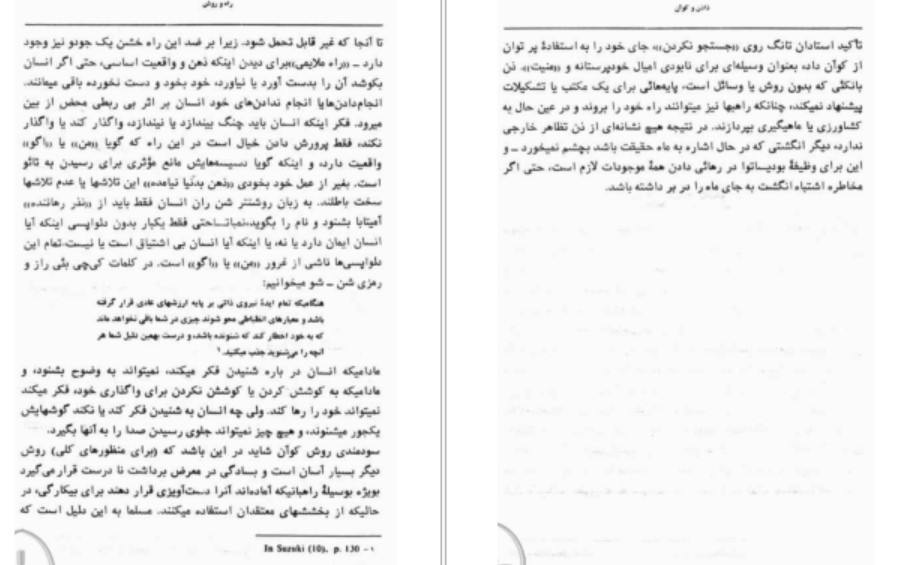 راه و روش
تا آنجا که غیر قابل تحمل شود. زیرا بر ضد این راه خشن یک جودو نیز وجود
دارد ــ «راه ملایمی»برای دیدن اینکه ذهن و واقعیت اساسی، حتی اگر انسان
بکوشد آن را بدست آورد یا نیاورد، خود بخود و دست نخورده باقی میمانند.
انجام‌دادن‌ها یا انجام ندادن‌های خود انسان بر اثر بی ربطی محض از بین
میرود. فکر اینکه انسان باید چنگ بیندازد یا نیندازد، واگذار کند یا واگذار
نکند، فقط پرورش دادن خیال است در این راه که گویا «من» یا «اگو»
واقعیت دارد، و اینکه گویا دسیسه‌هایش مانع مؤثری برای رسیدن به تائو
است. بغیر از عمل خود بخودی «ذهن بدنیا نیامده» این تلاشها یا عدم تلاشها
سخت باطلند. به زبان روشنتر شن ران انسان فقط باید از «نذر رهاننده»
آمیتابا بشنود و نام را بگوید،نمباتــاحتی فقط یکبار بدون دلواپسی اینکه آیا
انسان ایمان دارد یا نه، یا اینکه آیا انسان بی اشتیاق است یا نیست.تمام این
دلواپسی‌ها ناشی از غرور «من» یا «اگو» است. در کلمات کی‌چی بئی راز و
رمزی شن ــ شو میخوانیم:
هنگامیکه تمام ایدهٔ نیروی ذاتی بر پایه ارزشهای عادی قرار گرفته
باشد و معیارهای انظباطی محو شوند چیزی در شما باقی نخواهد ماند
که به خود اخطار کند که شنونده باشد، و درست بهمین دلیل شما هر
آنچه را می‌شنوید جذب میکنید.۱
مادامیکه انسان در باره شنیدن فکر میکند، نمیتواند به وضوح بشنود، و
مادامیکه به کوشش کردن یا کوشش نکردن برای واگذاری خود، فکر میکند
نمیتواند خود را رها کند. ولی چه انسان به شنیدن فکر کند یا نکند گوشهایش
یکجور میشنوند، و هیچ چیز نمیتواند جلوی رسیدن صدا را به آنها بگیرد.
سودمندی روش کوآن شاید در این باشد که (برای منظورهای کلی) روش
دیگر بسیار آسان است و بسادگی در معرض برداشت نا درست قرار می‌گیرد
بویژه بوسیلهٔ راهبانیکه آماده‌اند آنرا دست‌آویزی قرار دهند برای بیکارگی، در
حالیکه از بخششهای معتقدان استفاده میکنند. مسلما به این دلیل است که
۱ – In Suzuki (10), p. 130
ذاذن و کوآن
تأکید استادان تانگ روی «جستجو نکردن»، جای خود را به استفادهٔ پر توان
از کوآن داد، بعنوان وسیله‌ای برای نابودی امیال خودپرستانه و «منیت». ذن
بانکئی که بدون روش یا وسائل است، پایه‌هائی برای یک مکتب یا تشکیلات
پیشنهاد نمیکند، چنانکه راهبها نیز میتوانند راه خود را بروند و در عین حال به
کشاورزی یا ماهیگیری بپردازند. در نتیجه هیچ نشانه‌ای از ذن تظاهر خارجی
ندارد، دیگر انگشتی که در حال اشاره به ماه حقیقت باشد بچشم نمیخورد ــ و
این برای وظیفهٔ بودیساتوا در رهائی دادن همهٔ موجودات لازم است، حتی اگر
مخاطره اشتباه انگشت به جای ماه را در بر داشته باشد.